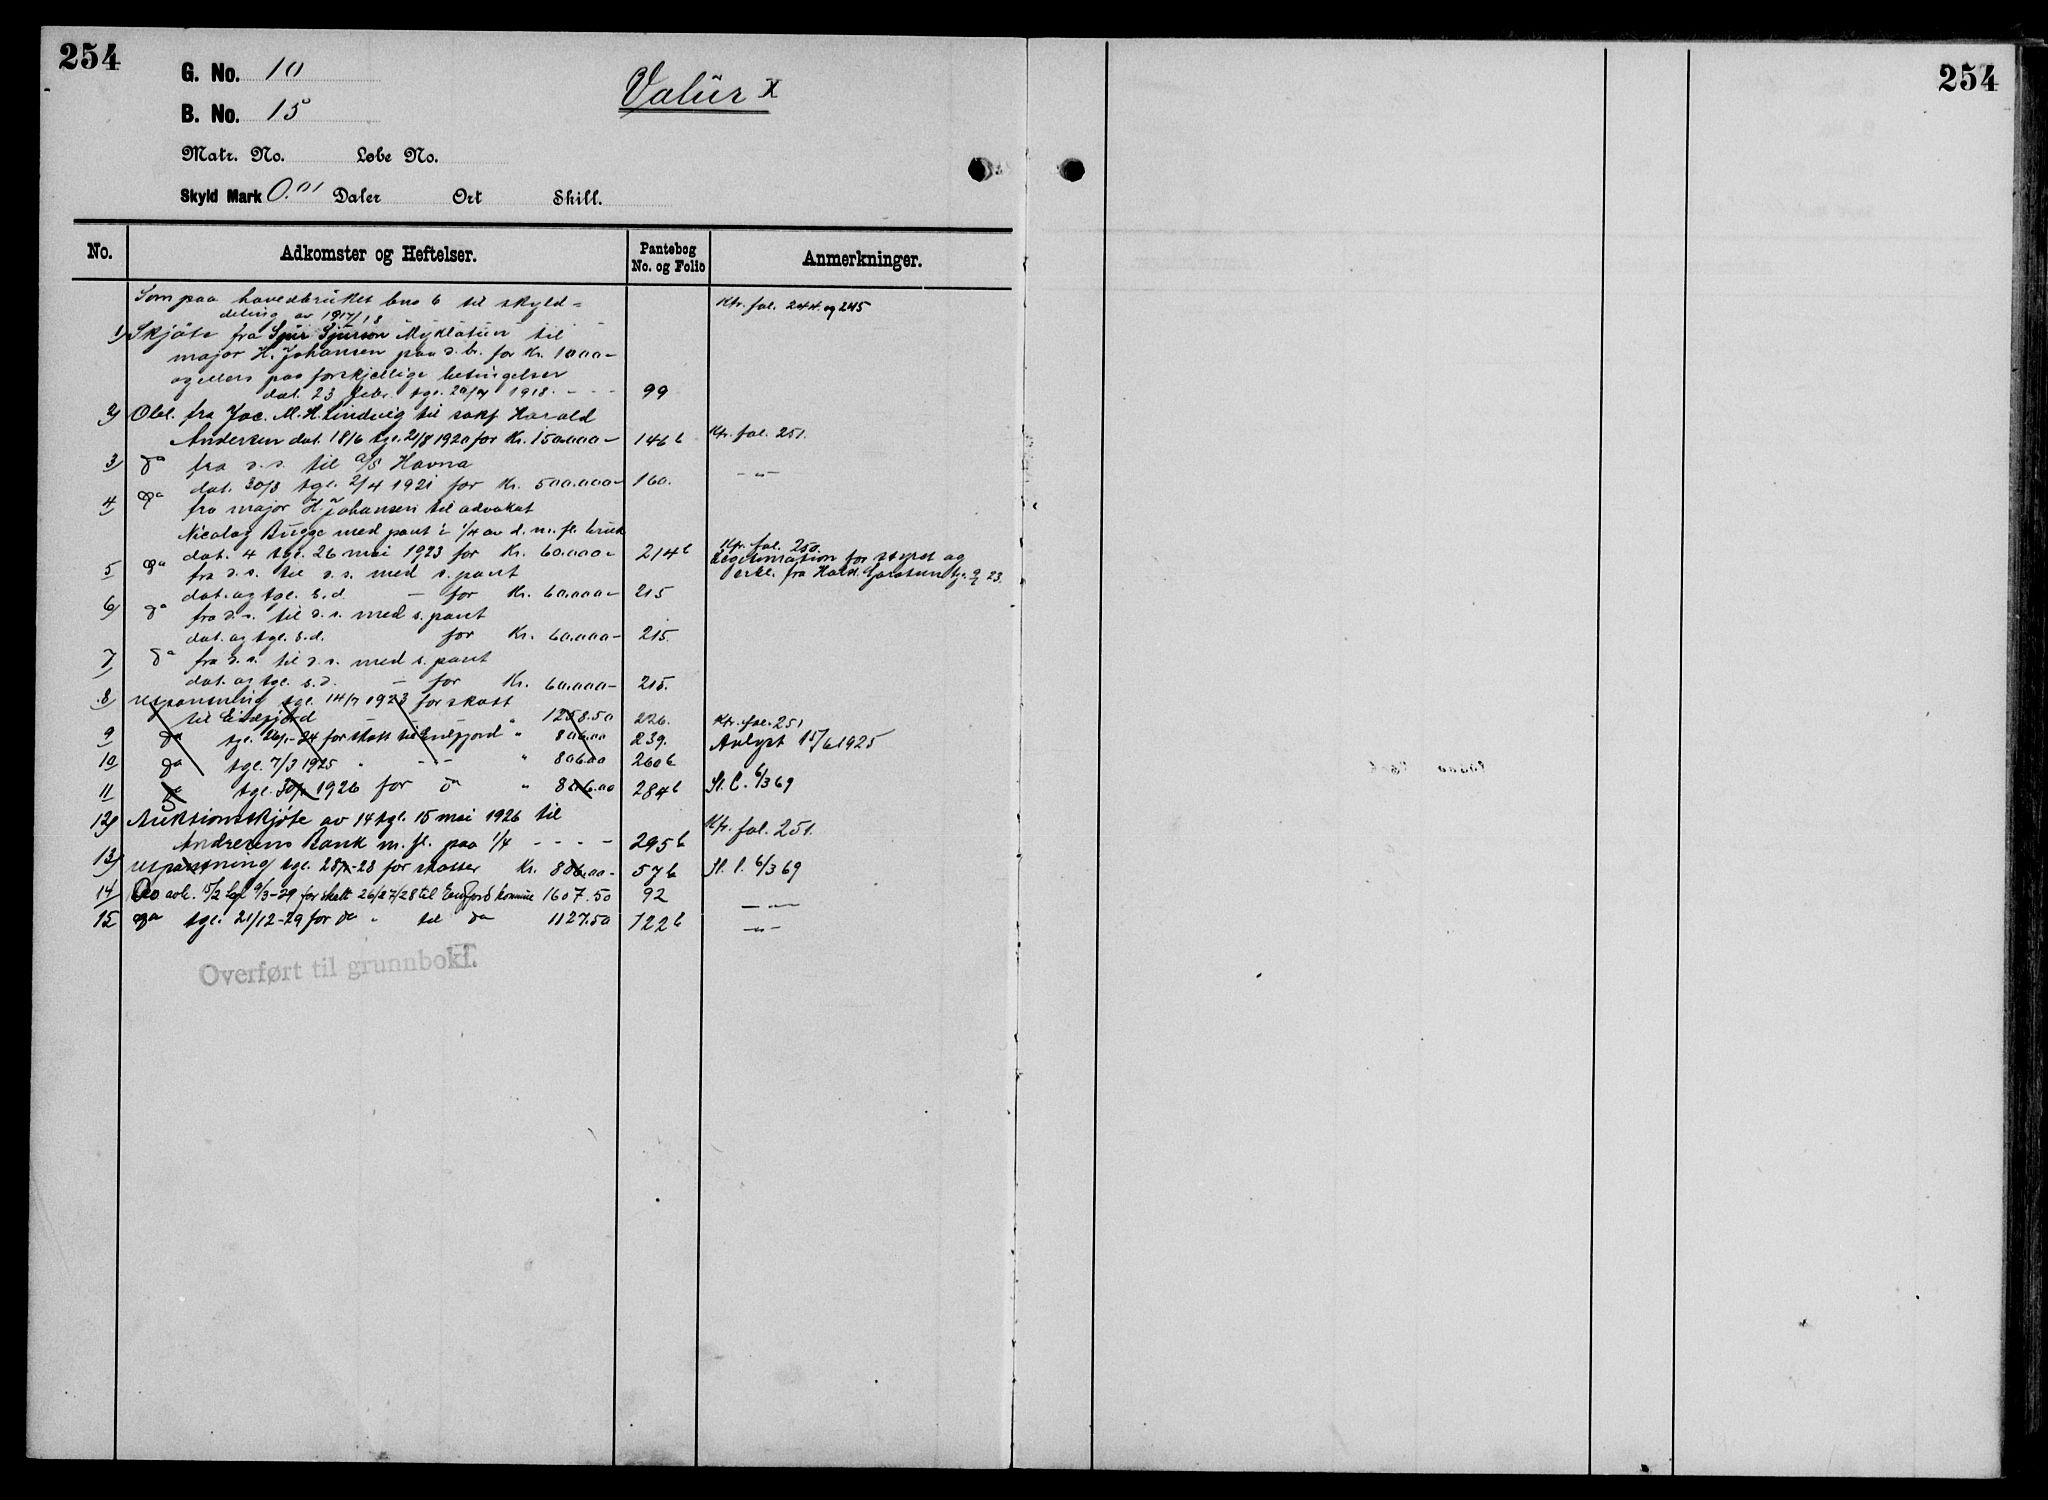 254
254
G. No. 10
Valür x
B. No. 15
Matr. No. Løbe No.
Skyld Mark 0.01 Daler Ort Skill.
No. Adkomster og Heftelser. Pantebog No. og Folio Anmerkninger.
Som paa hovedbruket bno 6 til skyld=
deling av 1917/18 Kfr. fol. 244 og 245
1) Skjøte fra Sjur Sjurson Myklatun til
major H. Johansen paa d. br. for Kr. 1000-
og ellers paa forskjellige betingelser
dat. 23 febr. tgl. 1918. - - - 99
2) Obl. fra Jac. M. H. Lindvig til sakf. Harald
Andersen dat. 18/6 tgl. 21/8 1920 for Kr. 150.000- 146b Kfr. fol. 251.
3) do fra d.s. til a/s Havna
dat. 30/3 tgl. 2/4 1921 for Kr. 500.000- 160. -"-
4 do fra major H. Johansen til advokat
Nicolay Bugge med pant i 1/4 av d. m. fl. bruk
dat. 4 tgl. 26 mai 1923 for Kr. 60.000- 214b Kfr. fol. 250.
Legitimation for styret og
5 do fra d.s. til d.s. med s. pant
erkl. fra
dat. og tgl. s.d. - for Kr. 60.000- 215
6) do fra d.s. til d.s. med s. pant
dat. og tgl. s.d. for Kr. 60.000- 215.
7) do fra d.s. til d.s. med s. pant
dat. og tgl. s.d. - for Kr. 60.000- 215.
8) utpantning tgl. 14/7 1923 for skatt
til Eidfjord " 1258.50 226. Kfr. fol. 251
9 do tgl. -24 for skatt til Eidfjord " 806.00 239. Avlyst 15/6 1925
10 do tgl. 7/3 1925 " - - " 806.00 260b
11 do tgl. 1926 for do " 806.00 284b Sl. C. 6/3 69
12) Auktionsskjøte av 14 tgl. 15 mai 1926 til
Andresens Bank m. fl. paa 1/4 - - - - 295b Kfr. fol. 251.
13) utpantning tgl. -28 for skatter Kr. 806.00- 57b Sl. C. 6/3 69
14 Do avh. 15/2 tgl 9/3-29 for skatt 26/27/28 til Eidfjord kommune 1607.50 92 -"-
15 do tgl. 21/12-29 for do " til do 1127.50 122b -"-
Overført til grunnbok.